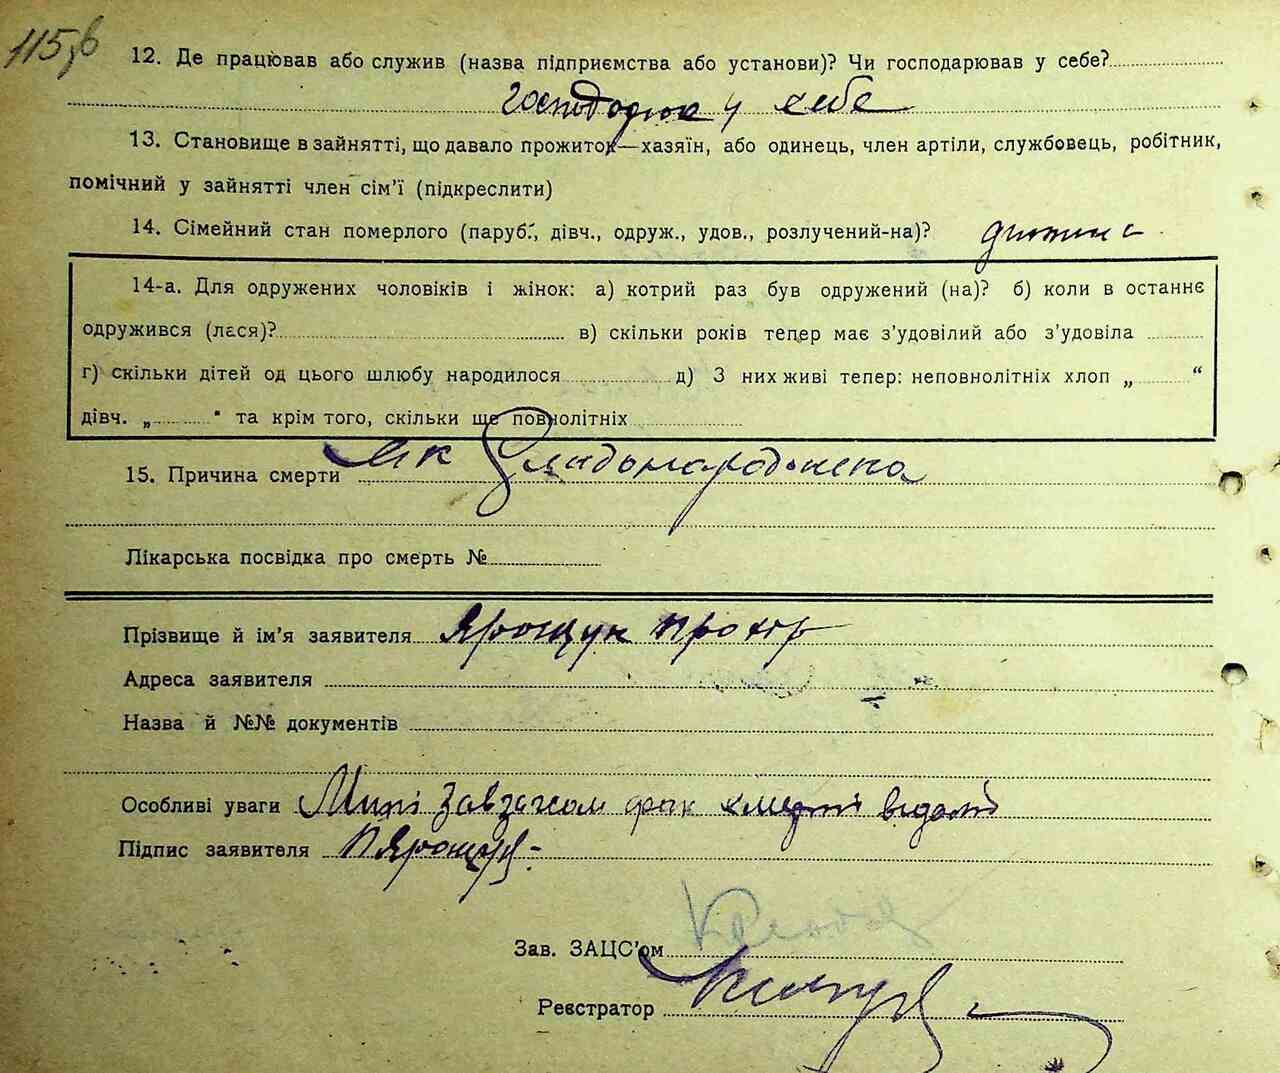 115,в
12. Де працював або служив (назва підприємства або установи)? Чи господарював у себе?
Господарює у себе
13. Становище в зайнятті, що давало прожиток—хазяїн, або одинець, член артіли, службовець, робітник,
помічний у зайнятті член сім'ї (підкреслити)
14. Сімейний стан померлого (паруб., дівч., одруж., удов., розлучений-на)? дитина
14-а. Для одружених чоловіків і жінок: а) котрий раз був одружений (на)? б) коли в останнє
одружився (лася)? в) скільки років тепер має з'удовілий або з'удовіла
г) скільки дітей од цього шлюбу народилося д) З них живі тепер: неповнолітніх хлоп „ “
дівч. „ “ та крім того, скільки ще повнолітніх
15. Причина смерти
Лікарська посвідка про смерть №
Прізвище й ім'я заявителя Ярощук Прохор
Адреса заявителя
Назва й №№ документів
Особливі уваги Мині Завзагсом фак смерті відомі
Підпис заявителя П Ярощук
Зав. ЗАЦС'ом
Реєстратор